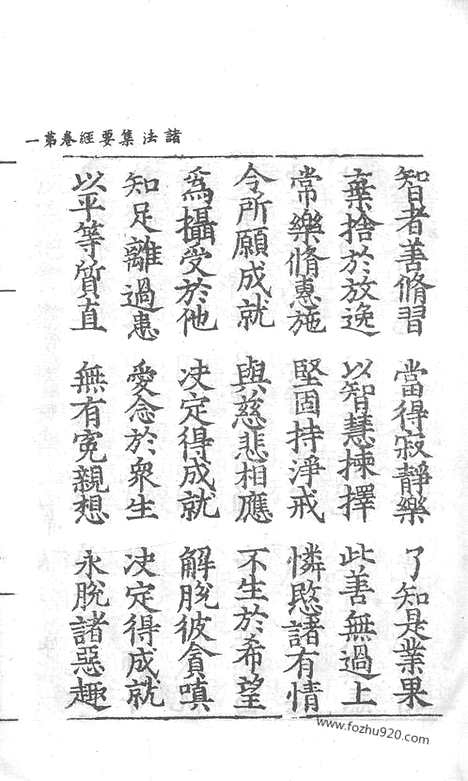 諸法集要經卷第一
智者善脩習　當得寂靜樂　了知是業果
棄捨於放逸　以智慧揀擇　此善無過上
常樂脩惠施　堅固持淨戒　憐愍諸有情
令所願成就　與慈悲相應　不生於希望
爲攝受於他　决定得成就　解脫彼貪嗔
知足離過患　愛念於衆生　决定得成就
以平等質直　無有寃親想　永脫諸惡趣
www.fozhu920.com